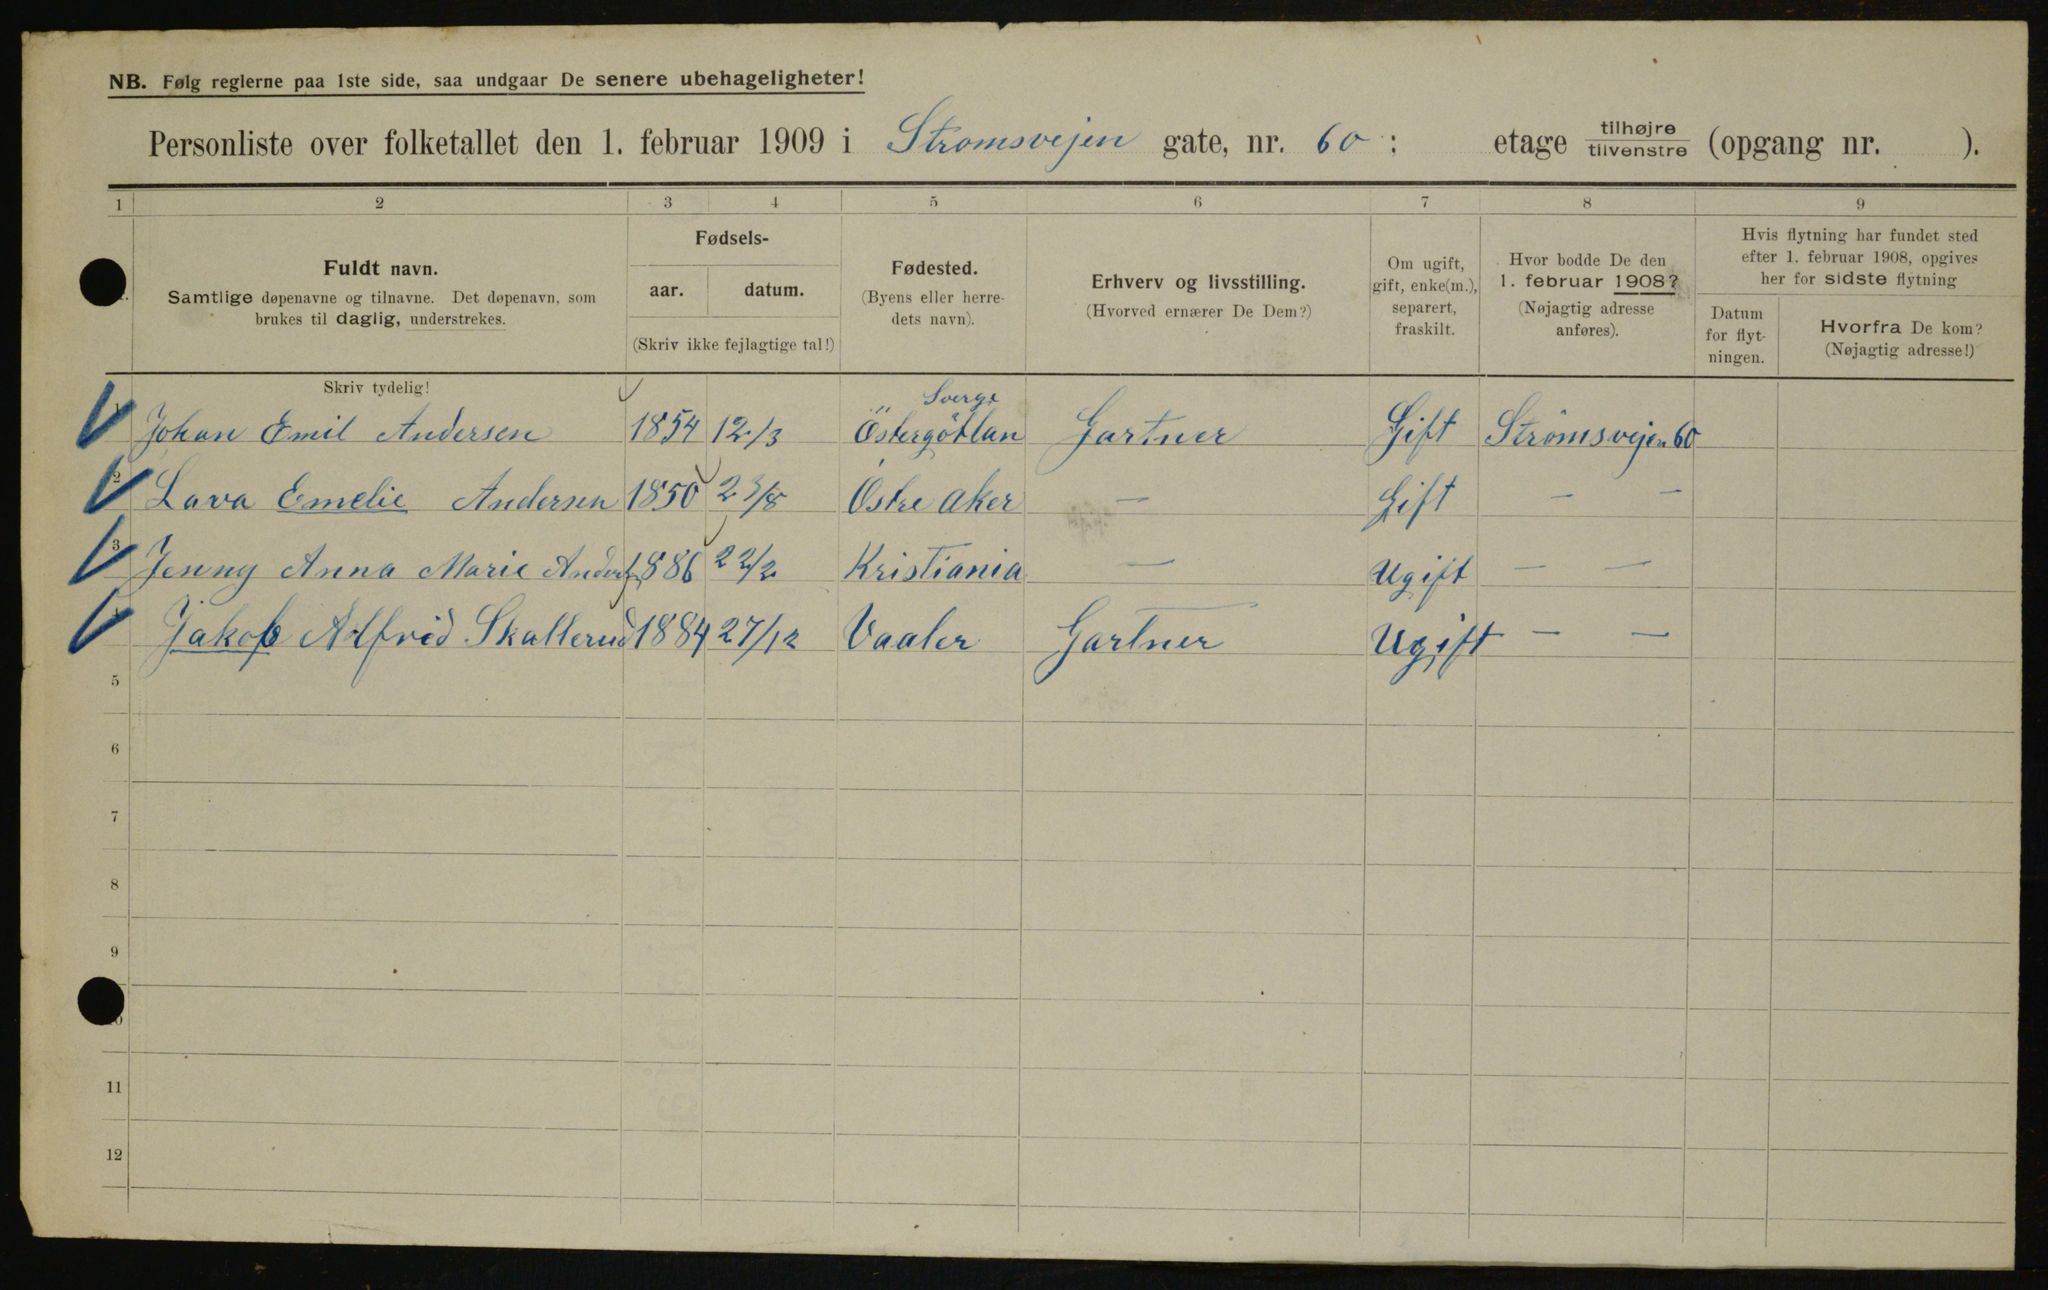 NB. Følg reglerne paa 1ste side, saa undgaar De senere ubehageligheter!
Personliste over folketallet den 1. februar 1909 i Stromsvejen gate, nr. 60 ; etage tilhøjre/tilvenstre (opgang nr. ).
1 2 3 4 5 6 7 8 9
Fuldt navn.
Samtlige døpenavne og tilnavne. Det døpenavn, som
brukes til daglig, understrekes.
Skriv tydelig!
Fødsels-
aar. datum.
(Skriv ikke fejlagtige tal!)
Fødested.
(Byens eller herre-
dets navn).
Erhverv og livsstilling.
(Hvorved ernærer De Dem?)
Om ugift,
gift, enke(m.),
separert,
fraskilt.
Hvor bodde De den
1. februar 1908?
(Nøjagtig adresse
anføres).
Hvis flytning har fundet sted
efter 1. februar 1908, opgives
her for sidste flytning
Datum
for flyt-
ningen.
Hvorfra De kom?
(Nøjagtig adresse!)
Sverge
1 Johan Emil Andersen 1854 12/3 Östergötlan Gartner Gift Strömsvejen 60
2 Lava Emelie Andersen 1850 23/8 Östre Aker — Gift — —
3 Jenny Anna Marie Anders 1886 22/2 Kristiania — Ugift — —
4 Jakob Alfrid Skallerud 1884 27/12 Vaaler Gartner Ugift — —
5
6
7
8
9
10
11
12